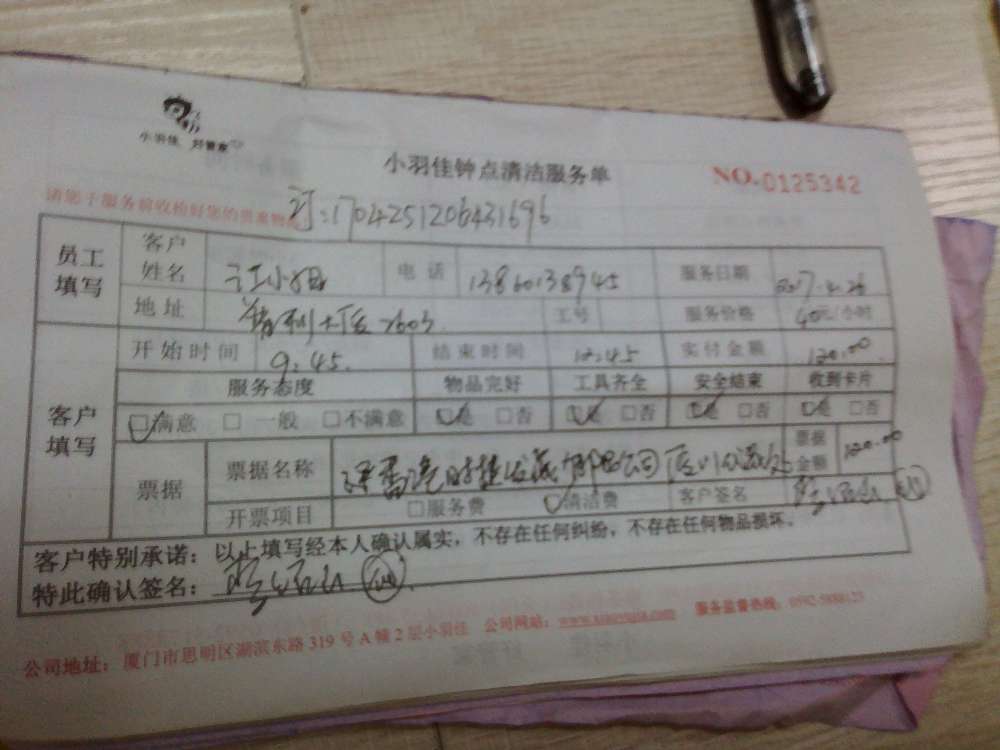 小羽佳 好管家
小羽佳钟点清洁服务单
NO.0125342
请您于服务前收拾好您的贵重物
订:1704251206431696
员工填写 客户姓名 江小姐 电话 13860138945 服务日期 2017.4.26
地址 大厦2603 工号 服务价格 40元/小时
开始时间 9:45 结束时间 12:45 实付金额 120.00
客户填写 服务态度 物品完好 工具齐全 安全结束 收到卡片
满意 一般 不满意 是 否 是 否 是 否 是 否
票据 票据名称 公司 票据金额 120.00
开票项目 服务费 清洁费 客户签名
客户特别承诺:以上填写经本人确认属实,不存在任何纠纷,不存在任何物品损坏。
特此确认签名:
公司地址:厦门市思明区湖滨东路319号A幢2层小羽佳 公司网站: 服务监督热线:0592-5888123